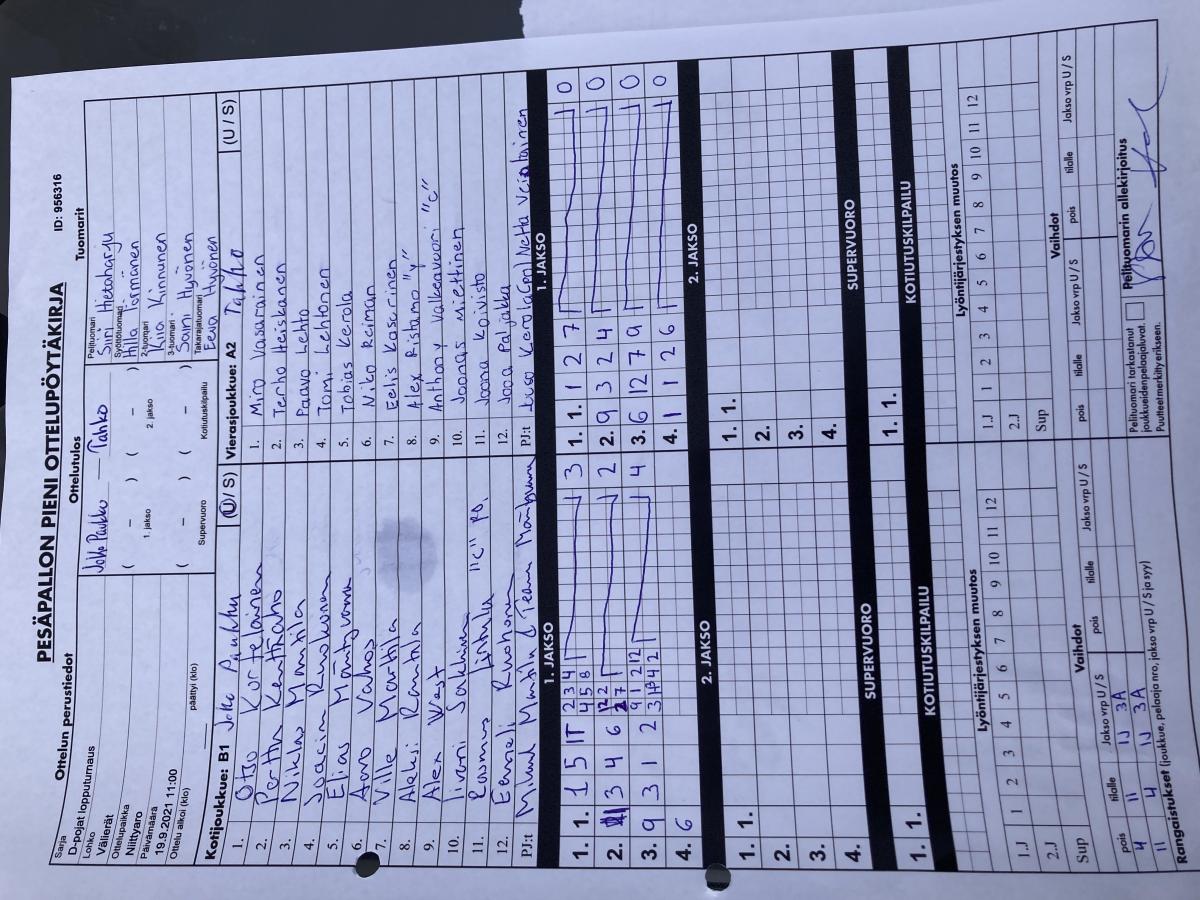 PESÄPALLON PIENI OTTELUPÖYTÄKIRJA
ID: 956316
Ottelun perustiedot
Sarja
D-pojat lopputurnaus
Lohko
Välierät
Ottelupaikka
Niittyaro
Päivämäärä
19.9.2021 11:00
Ottelu alkoi (klo)
päättyi (klo)
Ottelutulos
Joke Paukku — Tahko
( – ) ( – )
1. jakso 2. jakso
( – ) ( – )
Supervuoro Kotiutuskilpailu
Tuomarit
Pelituomari
Siiri Hietaharju
Syöttötuomari
Hilla Törmänen
2-tuomari
Kiia Kinnunen
3-tuomari
Saini Hyvönen
Takarajatuomari
Eeva Hyvönen
Kotijoukkue: B1 Joke Paukku (U / S)
1. Otso Kortelainen
2. Perttu Kenttäaho
3. Niklas Mantila
4. Joacim Ruokonen
5. Elias Mäntyvaara
6. Aaro Vahos
7. Ville Marttila
8. Aleksi Rantala
9. Alex West
10. Iivari Sorkkinen
11. Rasmus "C"
12. Eemeli Ruohonen
PJ:t
Vierasjoukkue: A2 Tahko (U / S)
1. Miro Vasarainen
2. Terho Heiskanen
3. Paavo Lehto
4. Tomi Lehtonen
5. Tobias Kerola
6. Niko Reiman
7. Eelis Kaskinen
8. Alex Ristamo "V"
9. Anthony Valkeavuori "C"
10. Joonas Miettinen
11. Joona Koivisto
12. Jooa Paljakka
PJ:t
1. JAKSO
1. 1. 1 5 1T 2 3 4 3
4 5 8
2. 3 4 6 12 2 2
7
3. 9 3 1 2 9 1 2 12 4
4. 6
1. JAKSO
1. 1. 1 2 7 0
2. 9 3 2 4 0
3. 6 12 7 9 0
4. 1 1 2 6 0
2. JAKSO
1. 1.
2.
3.
4.
2. JAKSO
1. 1.
2.
3.
4.
SUPERVUORO
1. 1.
SUPERVUORO
1. 1.
KOTIUTUSKILPAILU
KOTIUTUSKILPAILU
Lyöntijärjestyksen muutos
1 2 3 4 5 6 7 8 9 10 11 12
1.J
2.J
Sup
Lyöntijärjestyksen muutos
1 2 3 4 5 6 7 8 9 10 11 12
1.J
2.J
Sup
Vaihdot
pois tilalle Jakso vrp U / S pois tilalle Jakso vrp U / S
4 11 1J 3A
11 4 1J 3A
Vaihdot
pois tilalle Jakso vrp U / S pois tilalle Jakso vrp U / S
Rangaistukset (joukkue, pelaaja nro, jakso vrp U / S ja syy)
Pelituomari tarkastanut
joukkueiden pelaajaluvat.
Puutteet merkitty erikseen.
Pelituomarin allekirjoitus